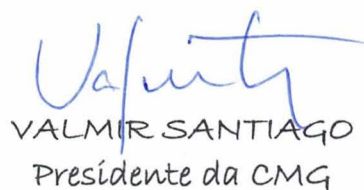 VALMIR SANTIAGO
Presidente da CMG